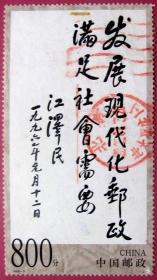 发展現代化郵政
满足社會需要
江澤民
一九九六年元月十二日
800分
CHINA
中国邮政